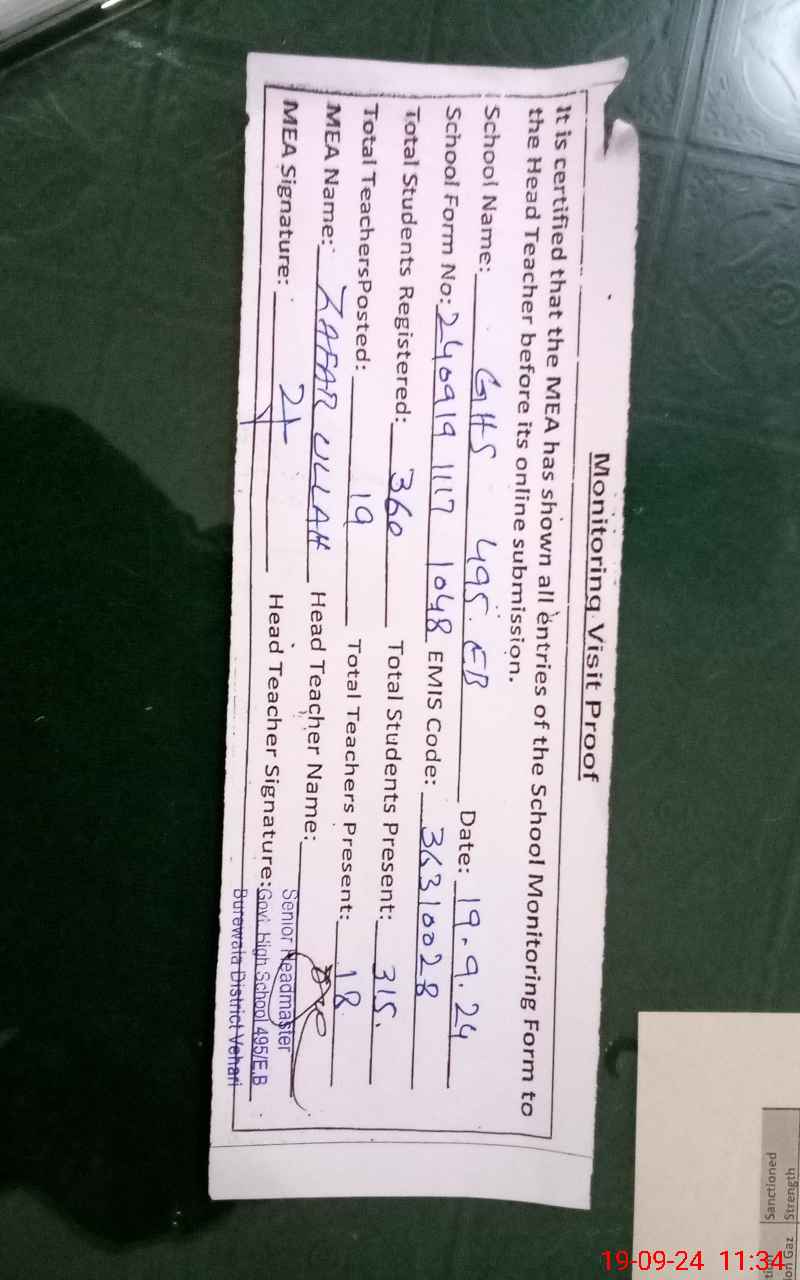 Monitoring Visit Proof
It is certified that the MEA has shown all entries of the School Monitoring Form to
the Head Teacher before its online submission.
School Name: GHS 495. EB Date: 19.9.24
School Form No: 240919 1117 1048 EMIS Code: 36310028
Total Students Registered: 360 Total Students Present: 315.
Total TeachersPosted: 19 Total Teachers Present: 18
MEA Name: ZAFAR ULLAH Head Teacher Name:
MEA Signature: Head Teacher Signature:
Senior Headmaster
Govt. High School 495/E.B
Burewala District Vehari
Strength
Sanctioned
Gaz
19-09-24 11:34